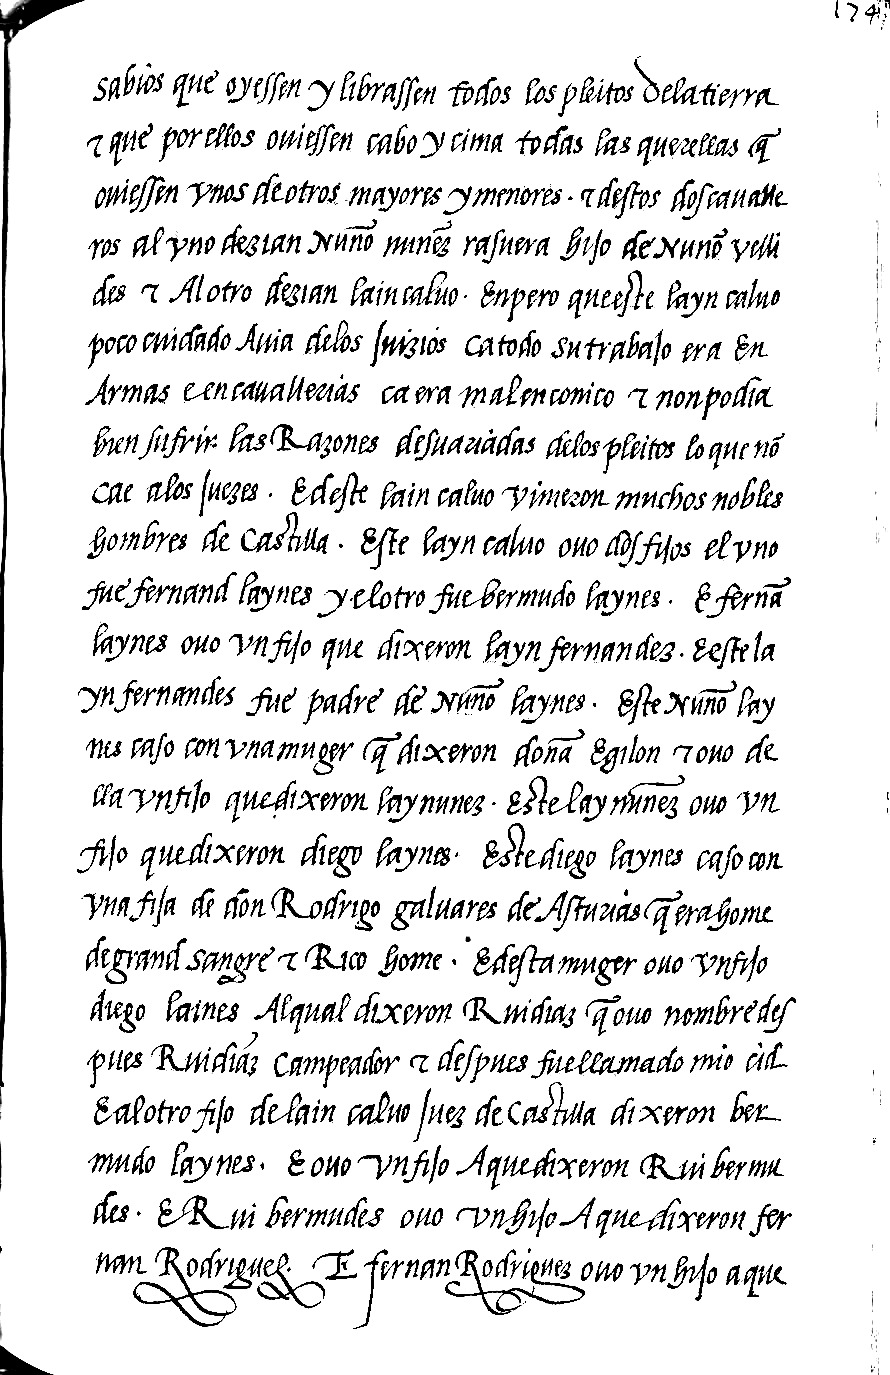 174
sabios que oyessen y librassen todos los pleitos dela tierra
⁊ que por ellos ouiessen cabo y cima todas las querellas q̃
ouiessen vnos de otros mayores y menores. ⁊ destos dos caualle
ros al vno dezian Nuño nuñez rasuera hijo de Nuño velli
des ⁊ Al otro dezian lain caluo. Enpero que este layn caluo
poco cuidado Auia delos Juizios Ca todo su trabajo era En
Armas e en cauallerias ca era malenconico ⁊ non podia
bien sufrir las Razones desuariadas delos pleitos lo que nõ
Cae alos Juezes. E deste lain caluo vinieron muchos nobles
hombres de Castilla. Este layn caluo ouo dos fijos el vno
fue fernand laynes y el otro fue bermudo laynes. E fernã
laynes ouo vn fijo que dixeron layn fernandez. E este la
yn fernandes fue padre de Nuño laynes. Este Nuño lay
nes caso con vna muger q̃ dixeron doña Egilon ⁊ ouo de
lla vn fijo que dixeron lay nunez. Este lay nuñez ouo vn
fijo que dixeron diego laynes. Este diego laynes caso con
vna fija de dõn Rodrigo galuares de Asturias q̃ era home
de grand sangre ⁊ Rico home. E desta muger ouo vn fijo
diego laines Al qual dixeron Ruidiaz q̃ ouo nombre des
pues Ruidiaz Campeador ⁊ despues fue llamado mio cid
E al otro fijo de lain caluo Juez de Castilla dixeron ber
mudo laynes. E ouo vn fijo A que dixeron Rui bermu
des. E Rui bermudes ouo vn hijo A que dixeron fer
nan Rodriguez. E fernan Rodriguez ouo vn hijo a que